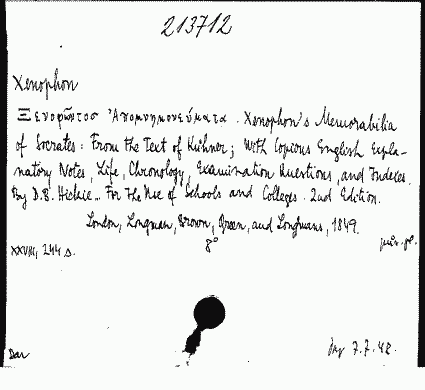 213712
Xenophon
Ξενοφῶντοσ Ἀπομνημονεύματα. Xenophon's Memorabilia
of Socrates: From the Text of Kühner; With Copious English Expla-
natory Notes, Life, Chronology, Examination Questions, and Indexes.
By D.B. Hickie... For the Use of Schools and Colleges. 2nd Edition.
London, Longman, Brown, Green, and Longmans, 1849.
XXVIII, 244 s. 8°
Dar 7.7.48